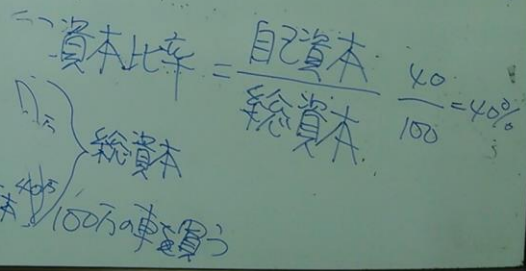 資本比率 = 自己資本 / 総資本 40/100 = 40%
総資本
40万
100万の車を買う